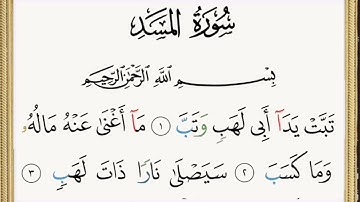 سُورَةُ المَسَدِ
بِسْمِ اللَّهِ الرَّحْمَٰنِ الرَّحِيمِ
تَبَّتْ يَدَآ أَبِى لَهَبٍ وَتَبَّ ١ مَآ أَغْنَىٰ عَنْهُ مَالُهُۥ
وَمَا كَسَبَ ٢ سَيَصْلَىٰ نَارًا ذَاتَ لَهَبٍ ٣